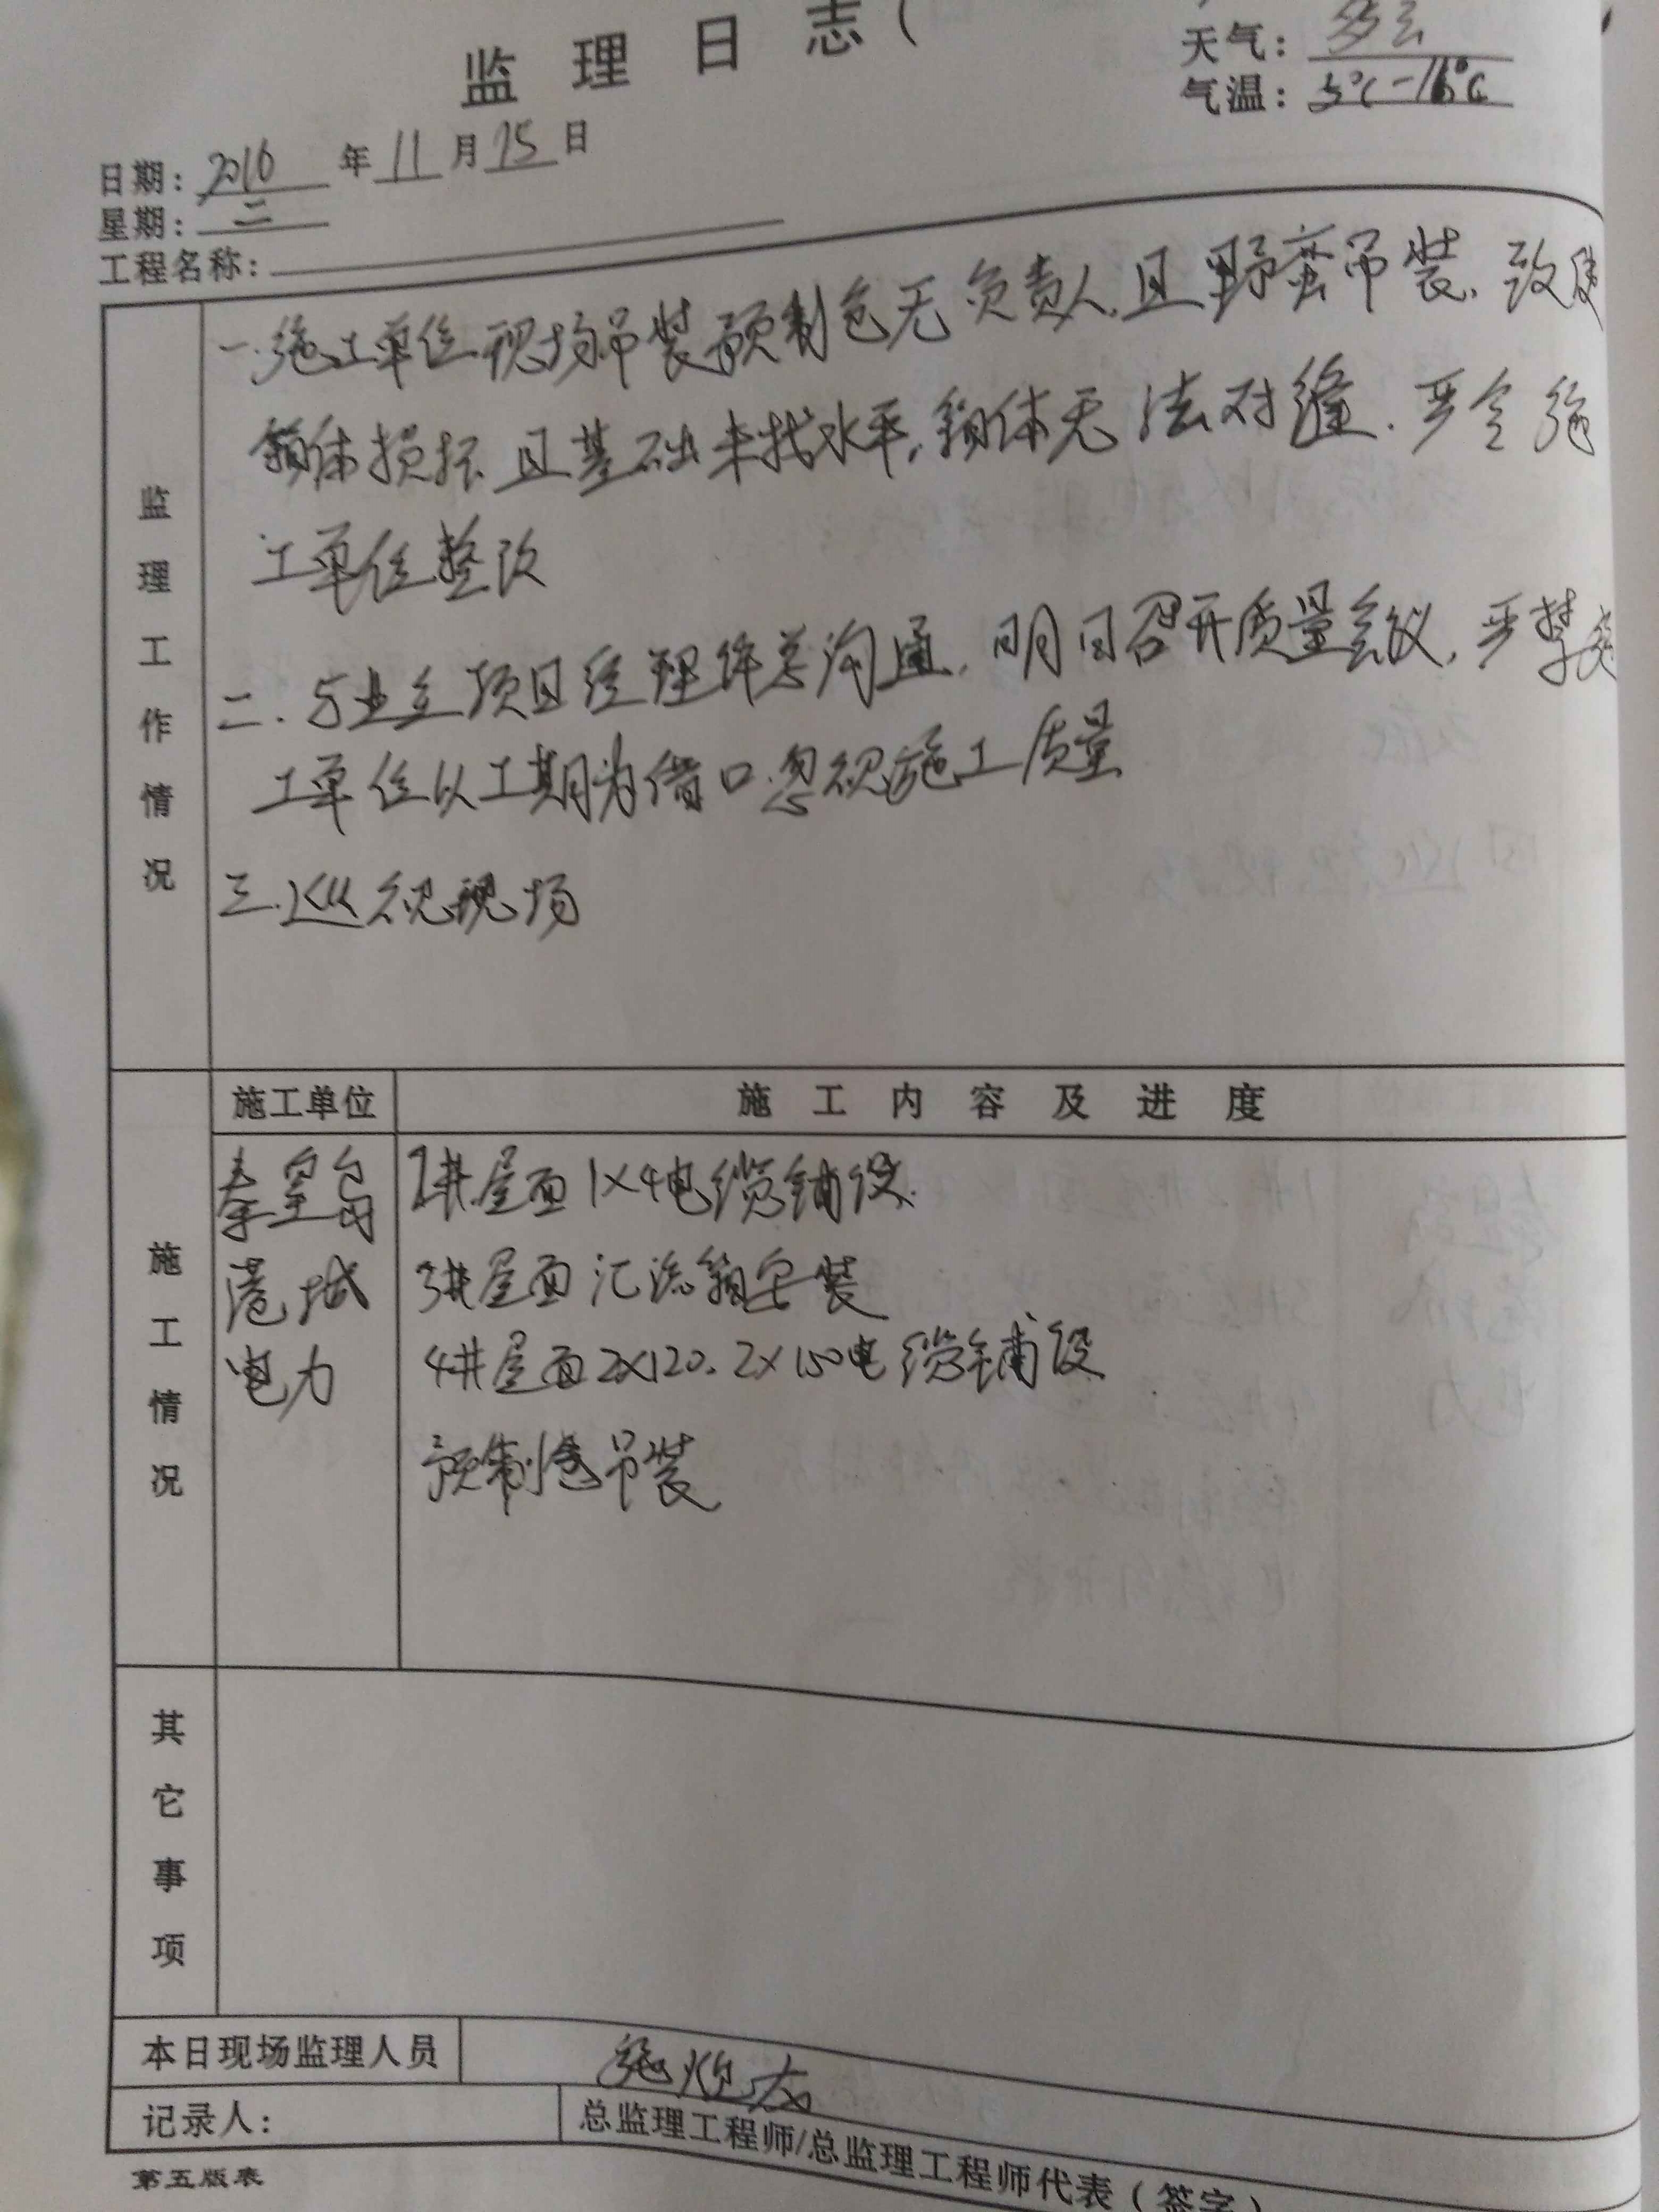 监理日志（
天气：多云
气温：5℃-16℃
日期：2016年11月15日
星期：二
工程名称：
监理工作情况
一.施工单位现场吊装预制仓无负责人,且野蛮吊装,致使
箱体损坏且基础未找水平,箱体无法对缝.严令施
工单位整改
二.与业主项目经理 总沟通,明日召开质量会议,严禁施
工单位以工期为借口忽视施工质量
三.巡视现场
施工情况
施工单位 施工内容及进度
秦皇岛 2#屋面1×4电缆铺设.
港城 3#屋面汇流箱安装
电力 4#屋面2×120.2×150电缆铺设
预制仓吊装
其它事项
本日现场监理人员 施
记录人： 总监理工程师/总监理工程师代表（签字）
第五版表